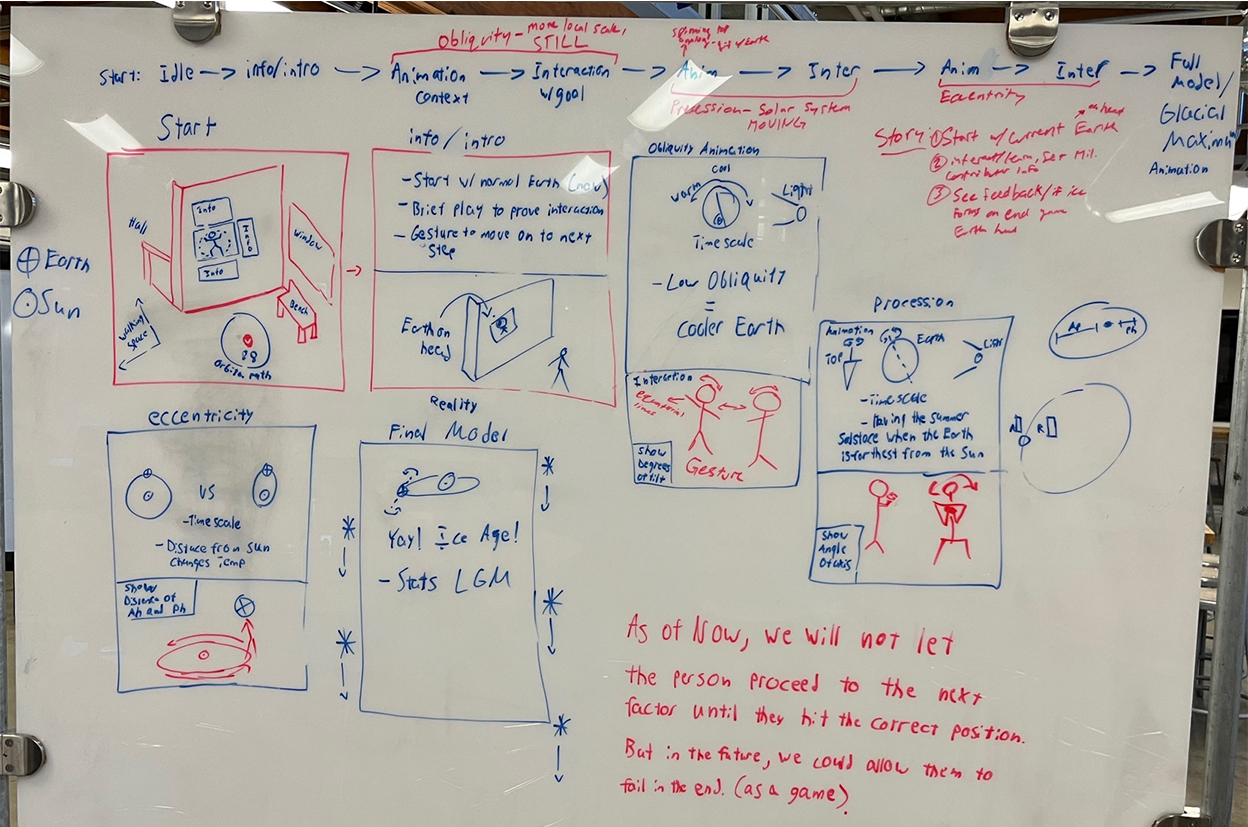 Obliquity - more local scale,
STILL
spinning top
Start: Idle → info/intro → Animation → Interaction → Anim → Inter → Anim → Inter → Full
context
w/goal
Model/
Glacial
Maximum
Animation
Precession - Solar System
MOVING
Eccentrity
Story: ① Start w/ current Earth
on head
② interact/learn, set Mil.
contributer info
③ See feedback/if ice
forms on end game
Earth head
Start
Info
Info
Info
Hall
Window
Bench
Walking
space
Orbital path
⊕ Earth
⊙ Sun
info/intro
- Start w/ normal Earth (now)
- Brief play to prove interaction
- Gesture to move on to next
step
Earth on
head
Obliquity Animation
Cool
warm
Light
Time scale
- Low Obliquity
=
Cooler Earth
Interaction
lines
Show
Degrees
of tilt
Gesture
Procession
Animation
TOP
Earth
Light
- Time scale
- Having the Summer
Solstace when the Earth
is farthest from the Sun
Show
Angle
of axis
Ae
Ph
A
R
eccentricity
VS
- Time scale
- Distace from sun
changes temp
Show
Distence of
Ah and Ph
Reality
Final Model
Yay! Ice Age!
- Stats LGM
As of Now, we will not let
the person proceed to the next
factor until they hit the correct position.
But in the future, we could allow them to
fail in the end. (as a game)